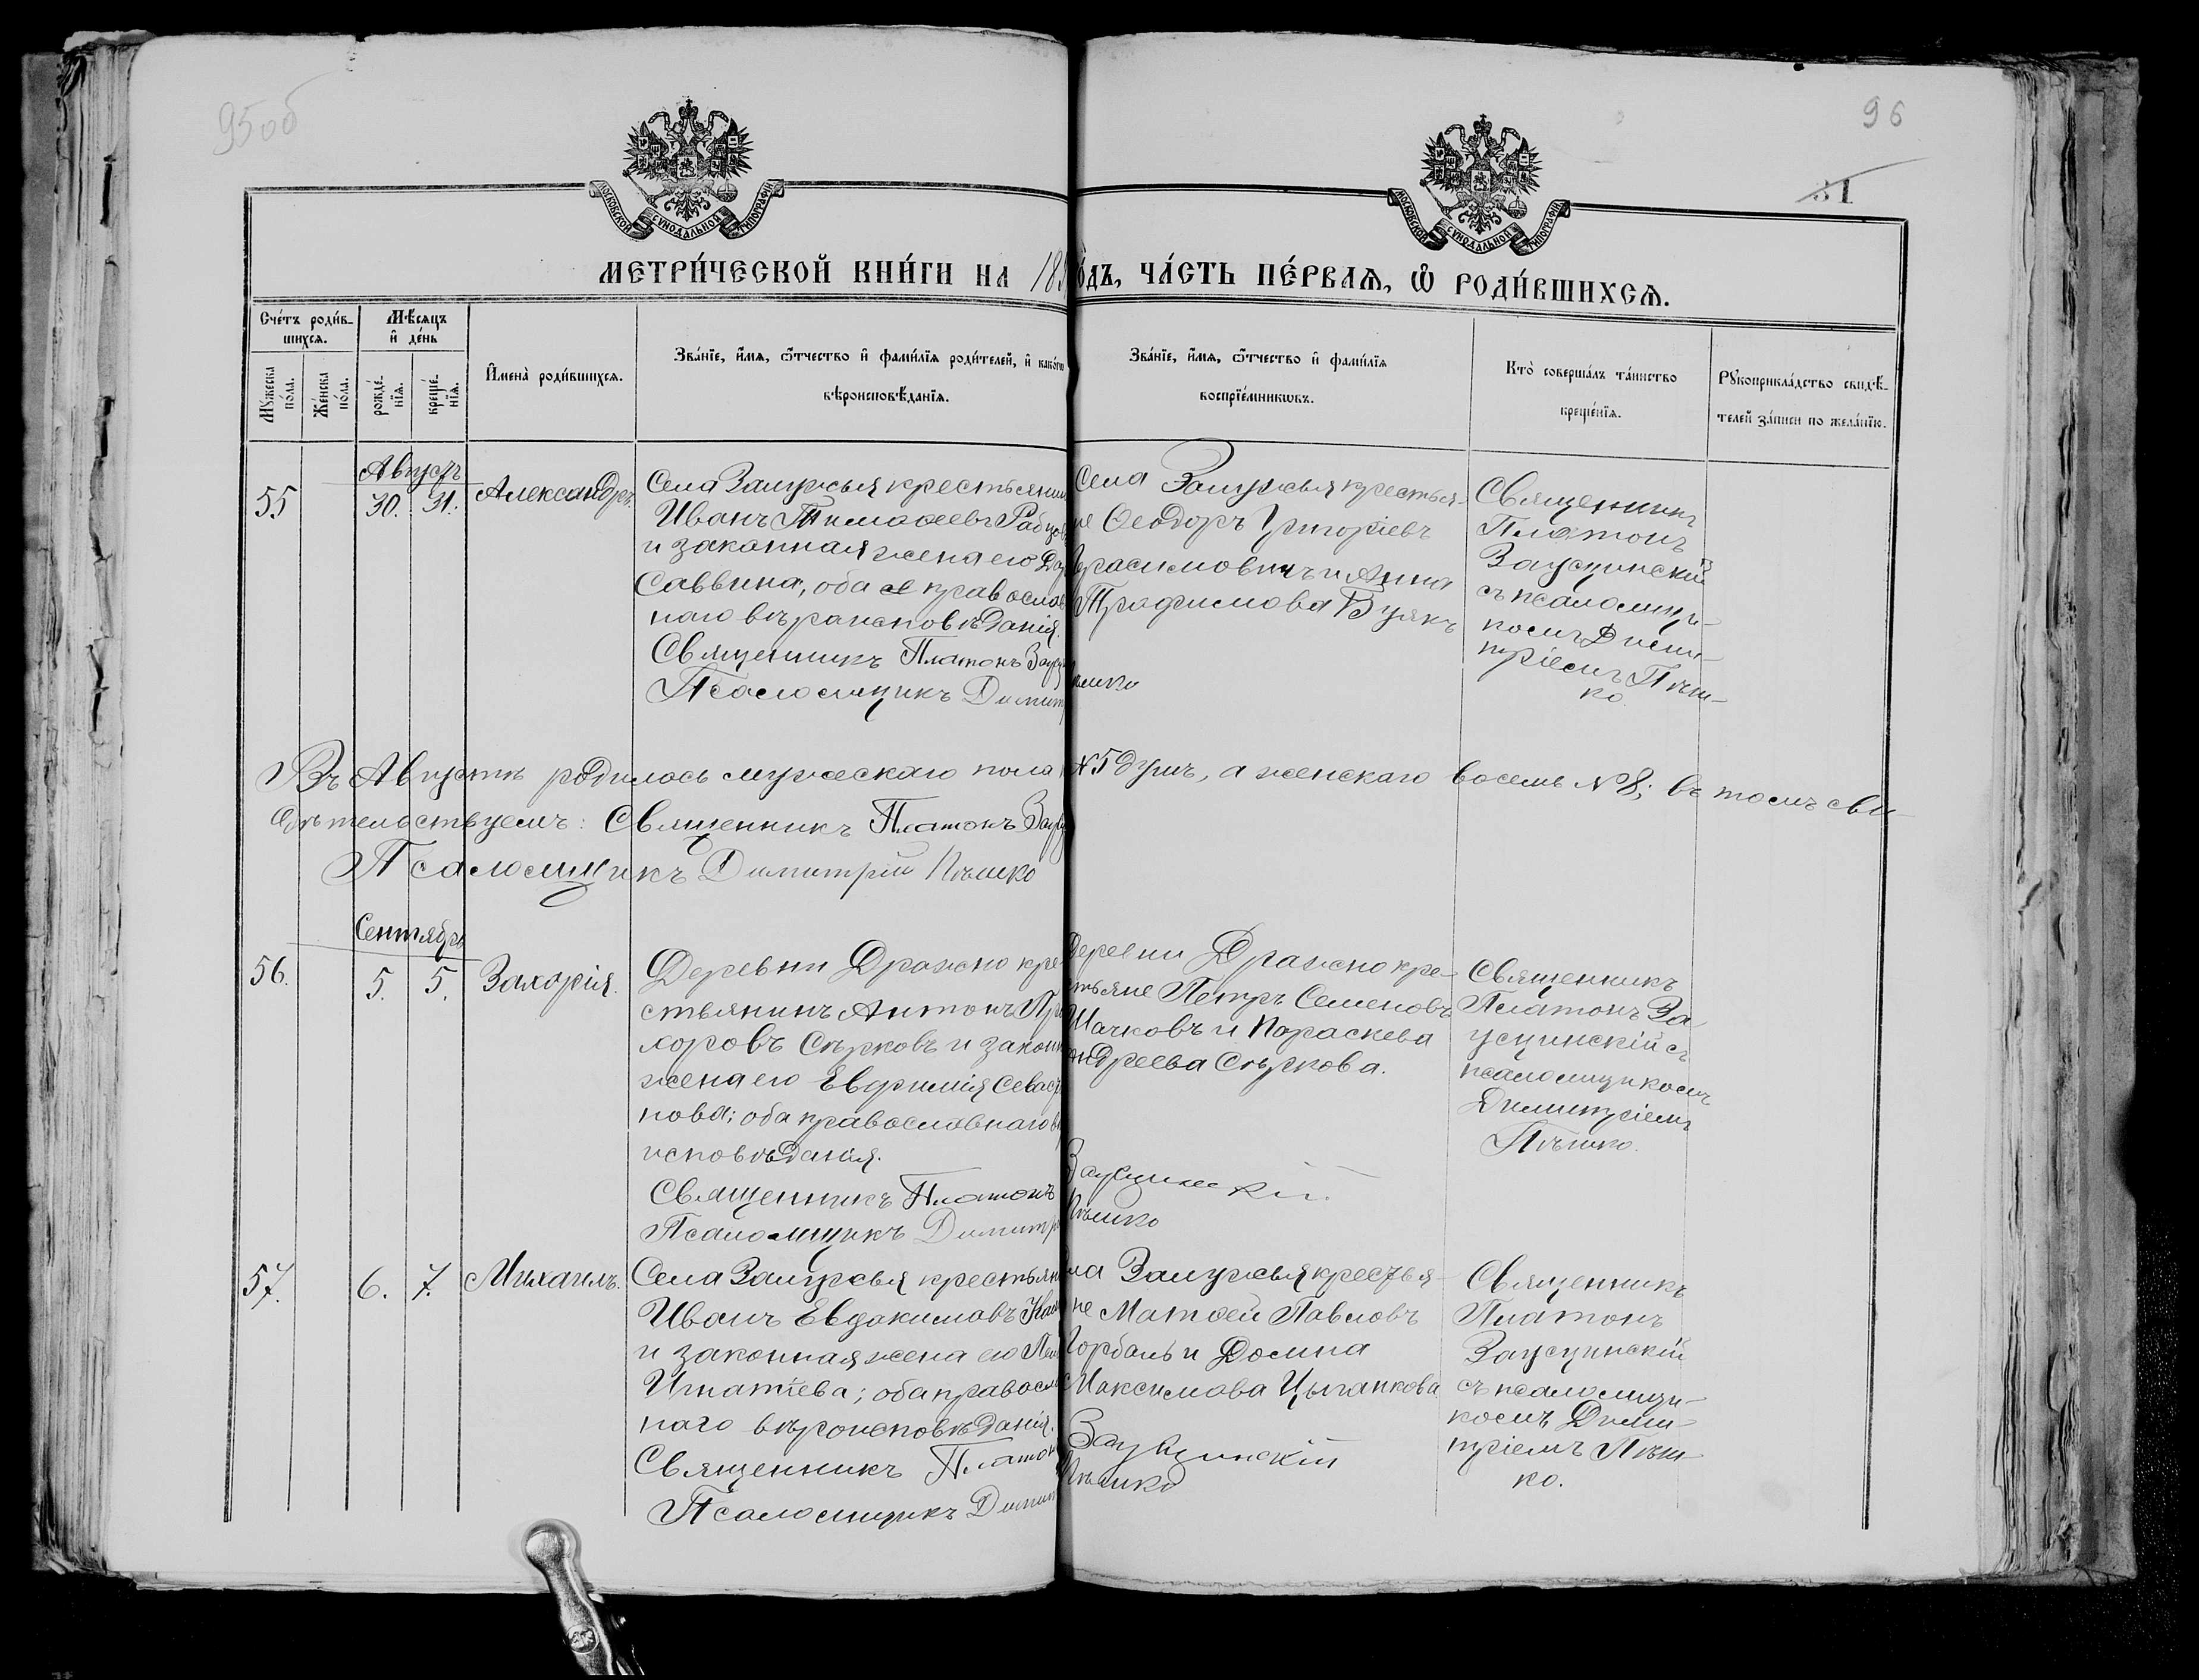 95об
96
31
МОСКОВСКОЙ СУНОДАЛЬНОЙ ТИПОГРАФІИ
МОСКОВСКОЙ СУНОДАЛЬНОЙ ТИПОГРАФІИ
МЕТРИ́ЧЕСКОЙ КНИ́ГИ НА 18
ОДЪ, ЧА́СТЬ ПЕ́РВАѦ, Ѡ҆ РОДИ́ВШИХСѦ.
Сче́тъ роди́в-
шихсѧ.
Мѣ́сѧцъ
и҆ де́нь
Мꙋ́жеска
по́ла.
Же́нска
по́ла.
рожде́-
нїѧ.
креще́-
нїѧ.
И҆мена̀ роди́вшихсѧ.
Зва́нїе, и҆́мѧ, ѻ҆́тчество и҆ фами́лїѧ роди́телей, и҆ како́гѡ
вѣроисповѣ́данїѧ.
Зва́нїе, и҆́мѧ, ѻ҆́тчество и҆ фами́лїѧ
воспрїе́мникѡвъ.
Кто̀ соверша́лъ та́инство
креще́нїѧ.
Рꙋкоприкла́дство свидѣ́-
телей за́писи по жела́нїю.
Августъ
55
30. 31.
Александръ.
Села Залужья крестьянин
Иванъ Тимофеевъ
и законная жена его
Саввина, оба православ
наго вѣроисповѣданія.
Священникъ Платонъ
Псаломщикъ Димит
Села Залужья крестья-
не Ѳеодоръ Григоріевъ
Герасимовичъ и Анна
Трофимова Буякъ
Священникъ
Платонъ
Заусцинскій
съ псаломщи-
комъ Дими-
тріемъ Пѣш-
ко.
Въ Августѣ родилось мужескаго пола
№5 душъ, а женскаго восемь №8; въ томъ сви-
дѣтельствуемъ: Священникъ Платонъ
Псаломщикъ Димитрій Пѣшко
Сентябрь
56.
5. 5.
Захарія.
Деревни Дражно кре
стьянинъ Антонъ Про
хоровъ Сѣрковъ и законн
жена его Евфимія Севаст
нова; оба православнаго в
исповѣданія.
Священникъ Платонъ
Псаломщикъ Димитр
Деревни Дражно кре-
стьяне Петръ Семеновъ
Мачковъ и Параскева
Андреева Сѣркова.
Заусцинскій.
Пѣшко
Священникъ
Платонъ За-
усцинскій съ
псаломщикомъ
Димитріемъ
Пѣшко.
57.
6. 7.
Михаилъ.
Села Залужья крестьян
Иванъ Евдокимовъ
и законная жена его
Игнатіева; оба правосл
наго вѣроисповѣданія.
Священникъ Платон
Псаломщикъ Димит
ла Залужья крестья-
не Матѳей Павловъ
Горбаль и Домна
Максимова Цыганкова
Заусцинскій
Пѣшко
Священникъ
Платонъ
Заусцинскій
съ псаломщи-
комъ Дими-
тріемъ Пѣш-
ко.